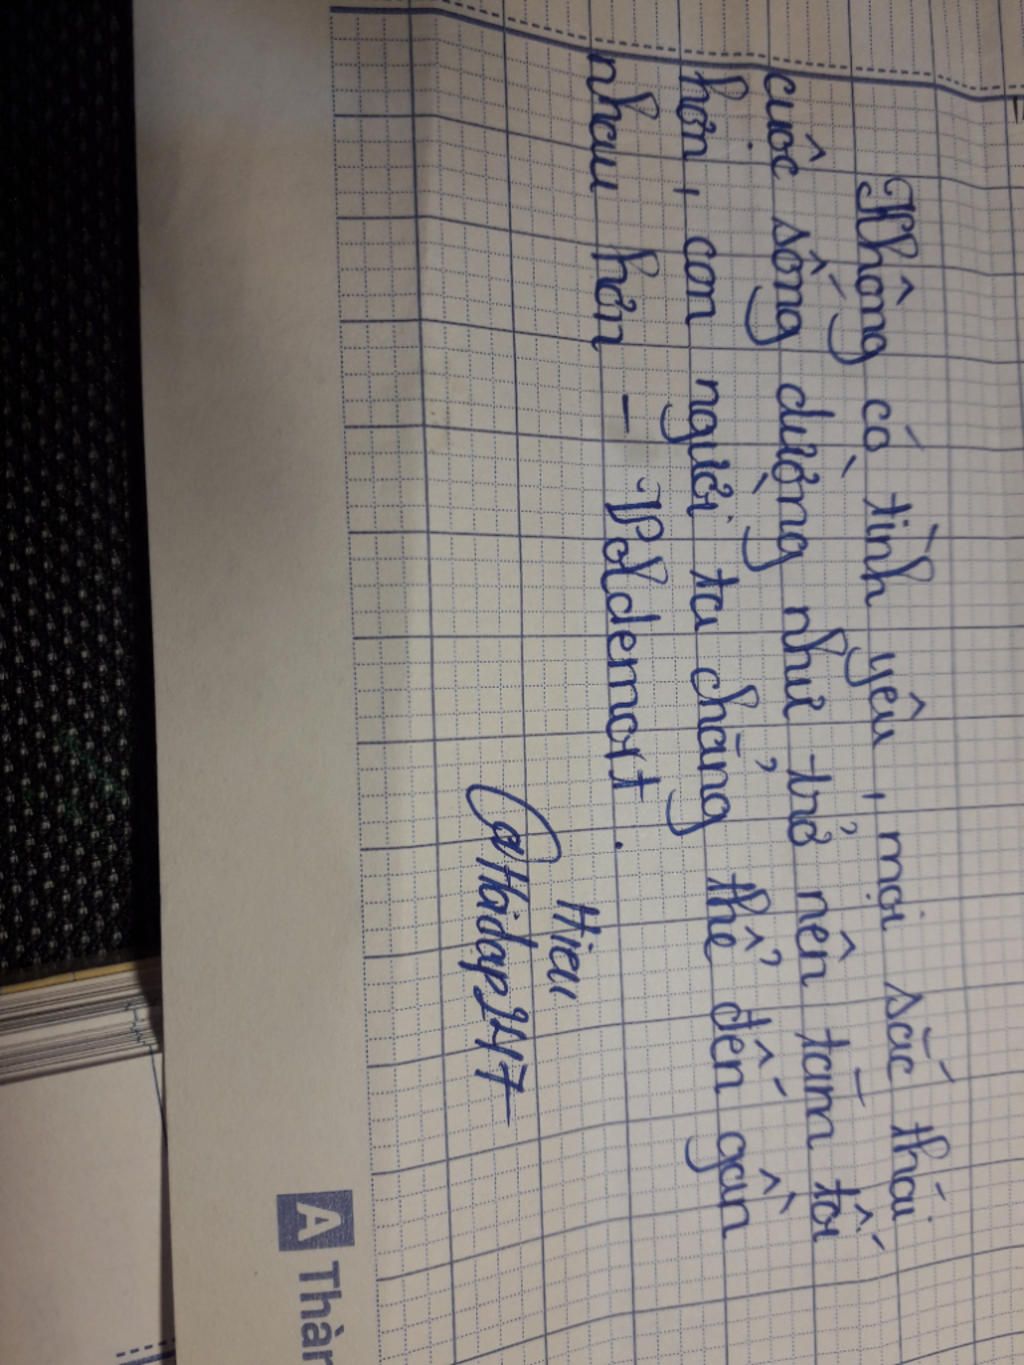 Không có tình yêu, mọi sắc thái
cuộc sống dường như trở nên tăm tối
hơn, con người ta chẳng thể đến gần
nhau hơn - Voldemort.
Hieu
@Haidap247
A Thàn